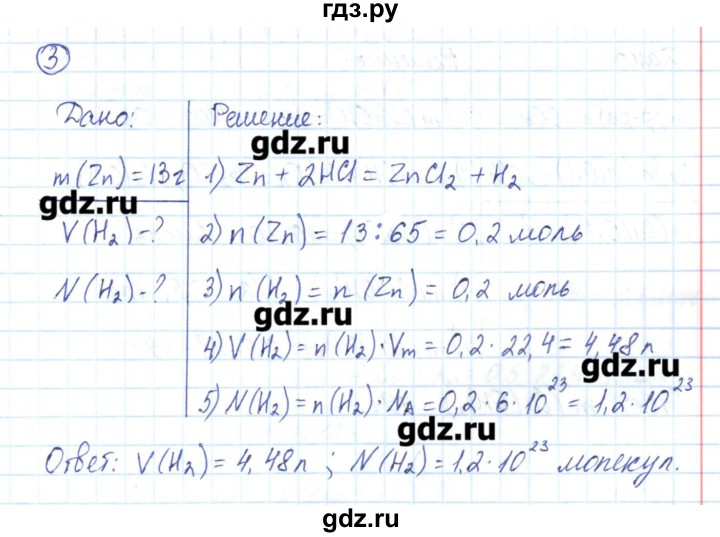 гдз.ру
3
Дано: Решение:
gdz.ru
m(Zn)=13г 1) Zn + 2HCl = ZnCl₂ + H₂
gdz.ru
V(H₂)-? 2) n(Zn) = 13:65 = 0,2 моль
N(H₂)-? 3) n(H₂) = n(Zn) = 0,2 моль
gdz.ru
4) V(H₂) = n(H₂)·Vm = 0,2·22,4 = 4,48л
gdz.ru
5) N(H₂) = n(H₂)·NA = 0,2·6·10²³ = 1,2·10²³
gdz.ru
Ответ: V(H₂) = 4,48л ; N(H₂) = 1,2·10²³ молекул.
gdz.ru